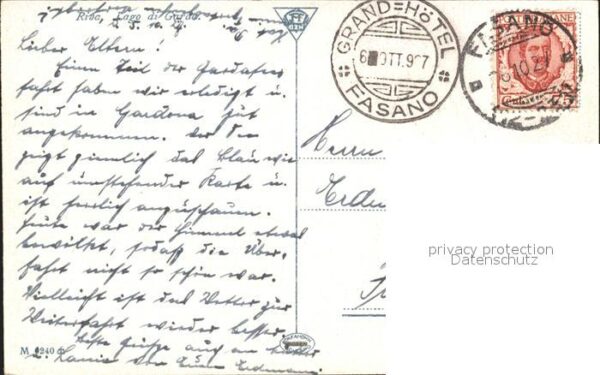 Riva, Lago di Garda.
Lieber Eltern!
Einen Teil der Gardasee
fahrt haben wir erledigt u.
sind in Gardone gut
angekommen. der See
zeigt ziemlich das Blau wie
auf umstehender Karte u.
ist herrlich anzuschauen.
Heute war der Himmel etwas
bewölkt, sodaß die Über-
fahrt nicht so schön war.
Vielleicht ist das Wetter zur
Weiterfahrt wieder besser.
beste Grüße auch an
von Euren
M 9240
GRAND=HÔTEL
6 OTT. 927
FASANO
FASANO
6.10.27
Herrn
privacy protection
Datenschutz